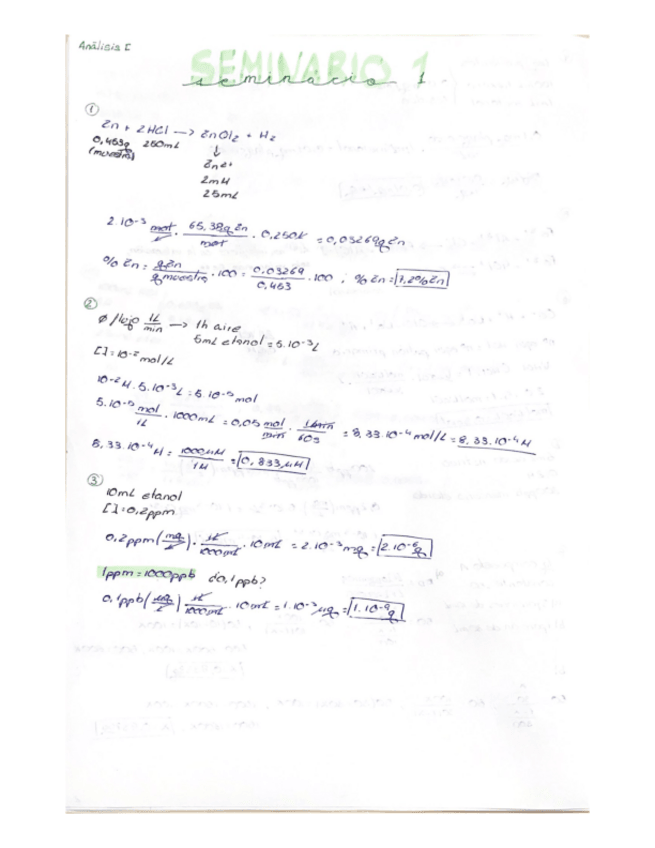 Análisis I
SEMINARIO 1
seminario 1
①
Zn + 2HCl → ZnCl2 + H2
0,453g 250mL
(muestra) ↓
Zn2+
2mM
25mL
2.10-3 mol/L . 65,38g Zn/mol . 0,250L = 0,03269g Zn
% Zn = g Zn/g muestra . 100 = 0,03269/0,453 . 100 ; % Zn = 7,2% Zn
②
Ø flujo 1L/min → 1h aire
5mL etanol = 5.10-3L
[ ] = 10-2 mol/L
10-2M . 5.10-3L = 5.10-5 mol
5.10-5 mol/1L . 1000mL = 0,05 mol/min . 1min/60s = 8,33.10-4 mol/L = 8,33.10-4M
8,33.10-4M = 1000µM/1M = 0,833µM
③
10mL etanol
[ ] = 0,2ppm
0,2ppm (mg/L) . 1L/1000mL . 10mL = 2.10-3mg = 2.10-6g
1ppm = 1000ppb d 0,1ppb?
0,1ppb (µg/L) 1L/1000mL . 10mL = 1.10-3µg = 1.10-9g